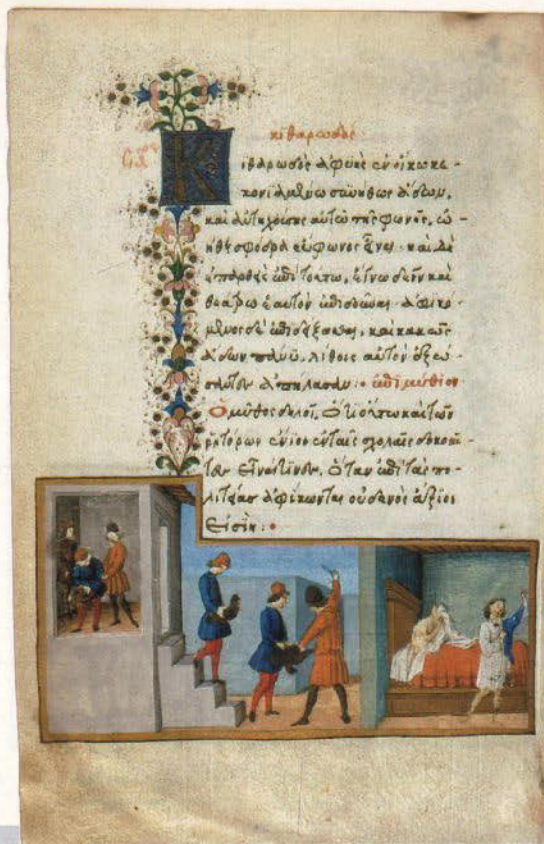 κιθαρωδός
Κιθαρωδὸς ἀφυὴς ἐν οἴκω κε-
κονιαμένω συνήθως ἄδων,
καὶ ἀντηχούσης αὐτῶ τῆς φωνῆς, ὠ-
ήθη σφόδρα εὔφωνος εἶναι· καὶ δὴ
ἐπαρθεὶς ἐπὶ τούτω, ἔγνω δεῖν καὶ
θεάτρω ἑαυτὸν ἐπιδοῦναι· ἀφικό-
μενος δὲ ἐπιδείξασθαι, καὶ κακῶς
ἄδων πάνυ, λίθοις αὐτὸν ἐξώ-
σαντες ἀπήλασαν: ἐπιμύθιον
Ὁ μῦθος δηλοῖ, ὅτι οὕτω καὶ τῶν
ῥητόρων ἔνιοι ἐν ταῖς σχολαῖς δοκοῦν-
τες εἶναί τινες, ὅταν ἐπὶ τὰς πο-
λιτείας ἀφίκωνται οὐδενὸς ἄξιοι
εἰσίν: